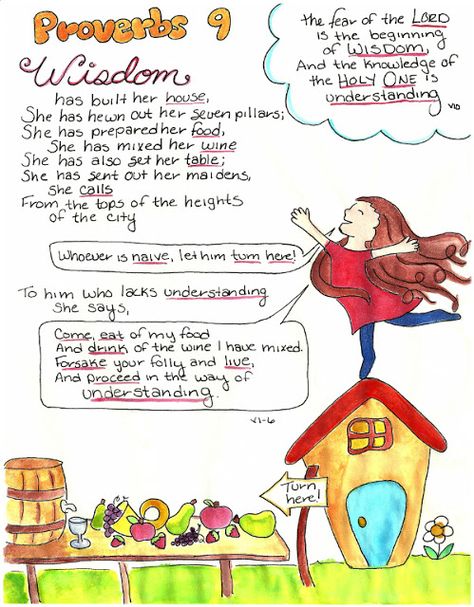 Proverbs 9
the fear of the LORD
is the beginning
of WISDOM,
And the knowledge of
the HOLY ONE is
understanding
V10
Wisdom
has built her house,
She has hewn out her seven pillars;
She has prepared her food,
She has mixed her wine
She has also set her table;
She has sent out her maidens,
she calls
From the tops of the heights
of the city
Whoever is naive, let him turn here!
To him who lacks understanding
She says,
Come, eat of my food
And drink of the wine I have mixed.
Forsake your folly and live,
And proceed in the way of
understanding.
V1-6
Turn
here!